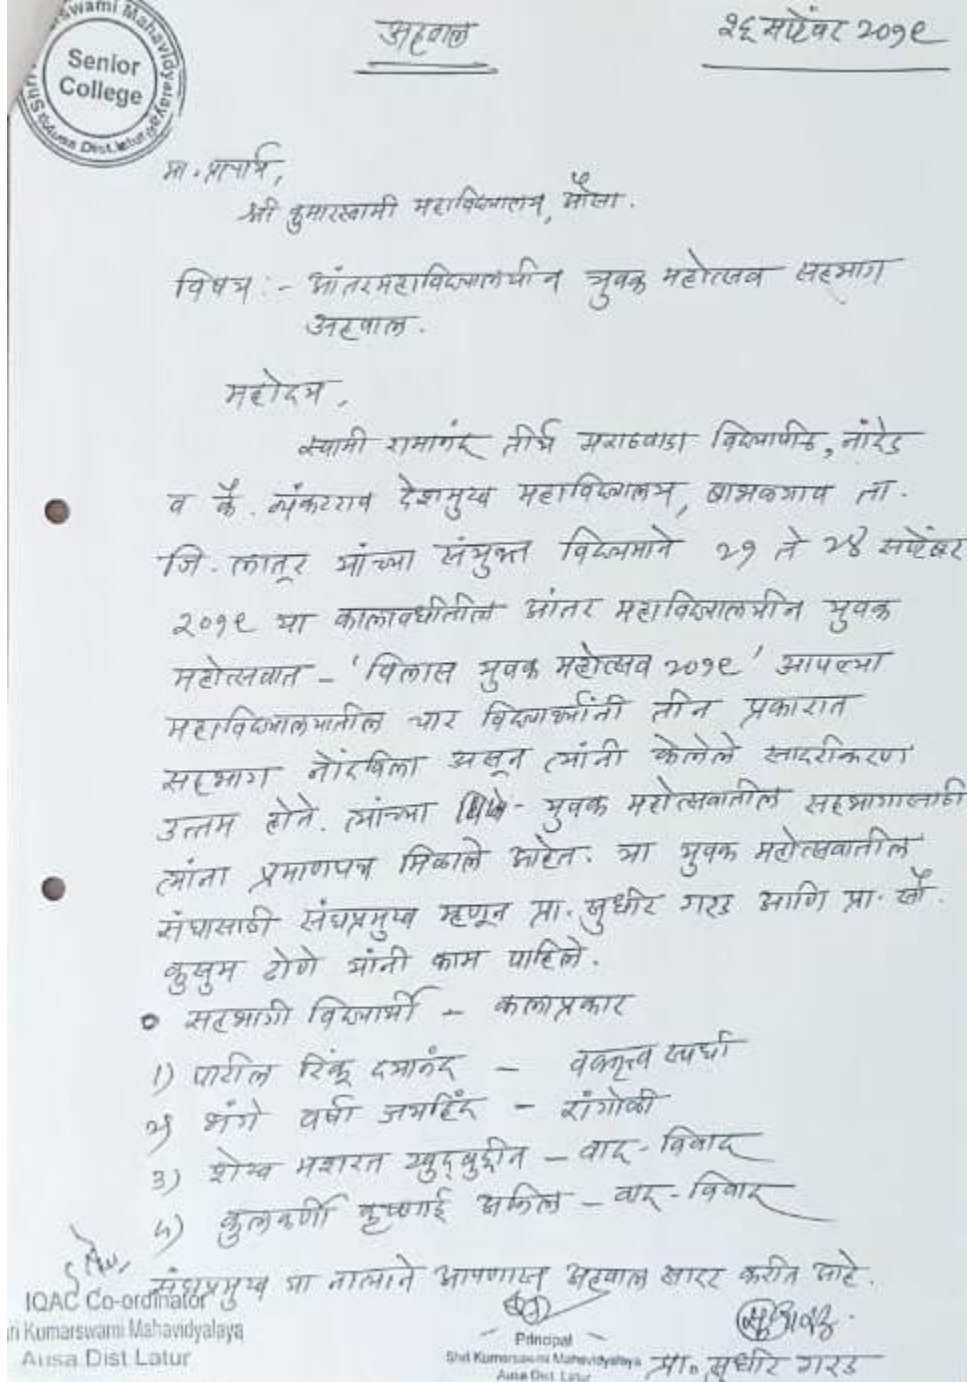 swami Mahavidyalaya
Senior
College
Ausa Dist. Latur
अहवाल
२६ सप्टेंबर २०१९
मा. प्राचार्य,
श्री कुमारस्वामी महाविद्यालय, औसा.
विषय :- आंतरमहाविद्यालयीन युवक महोत्सव सहभाग
अहवाल.
महोदय,
स्वामी रामानंद तीर्थ मराठवाडा विद्यापीठ, नांदेड
व कै. व्यंकटराव देशमुख महाविद्यालय, बाभळगाव ता.
जि. लातूर यांच्या संयुक्त विद्यमाने २१ ते २४ सप्टेंबर
२०१९ या कालावधीतील आंतर महाविद्यालयीन युवक
महोत्सवात - 'विलास युवक महोत्सव २०१९' आपल्या
महाविद्यालयातील चार विद्यार्थ्यांनी तीन प्रकारात
सहभाग नोंदविला असून त्यांनी केलेले सादरीकरण
उत्तम होते. त्यांच्या युवक महोत्सवातील सहभागासाठी
त्यांना प्रमाणपत्र मिळाले आहेत. या युवक महोत्सवातील
संघासाठी संघप्रमुख म्हणून प्रा. सुधीर गरड आणि प्रा. सौ.
कुसुम ढोणे यांनी काम पाहिले.
सहभागी विद्यार्थी - कलाप्रकार
1) पाटील रिंकू दयानंद - वक्तृत्व स्पर्धा
२) भंगे वर्षा जयहिंद - रांगोळी
3) शेख मशरत खुद्बुद्दीन - वाद-विवाद
४) कुलकर्णी कृष्णाई अनिल - वाद-विवाद
संघप्रमुख या नात्याने आपणास अहवाल सादर करीत आहे.
IQAC Co-ordinator
ri Kumarswami Mahavidyalaya
Ausa Dist Latur
Principal
Shri Kumarswami Mahavidyalaya
Ausa Dist. Latur
प्रा. सुधीर गरड